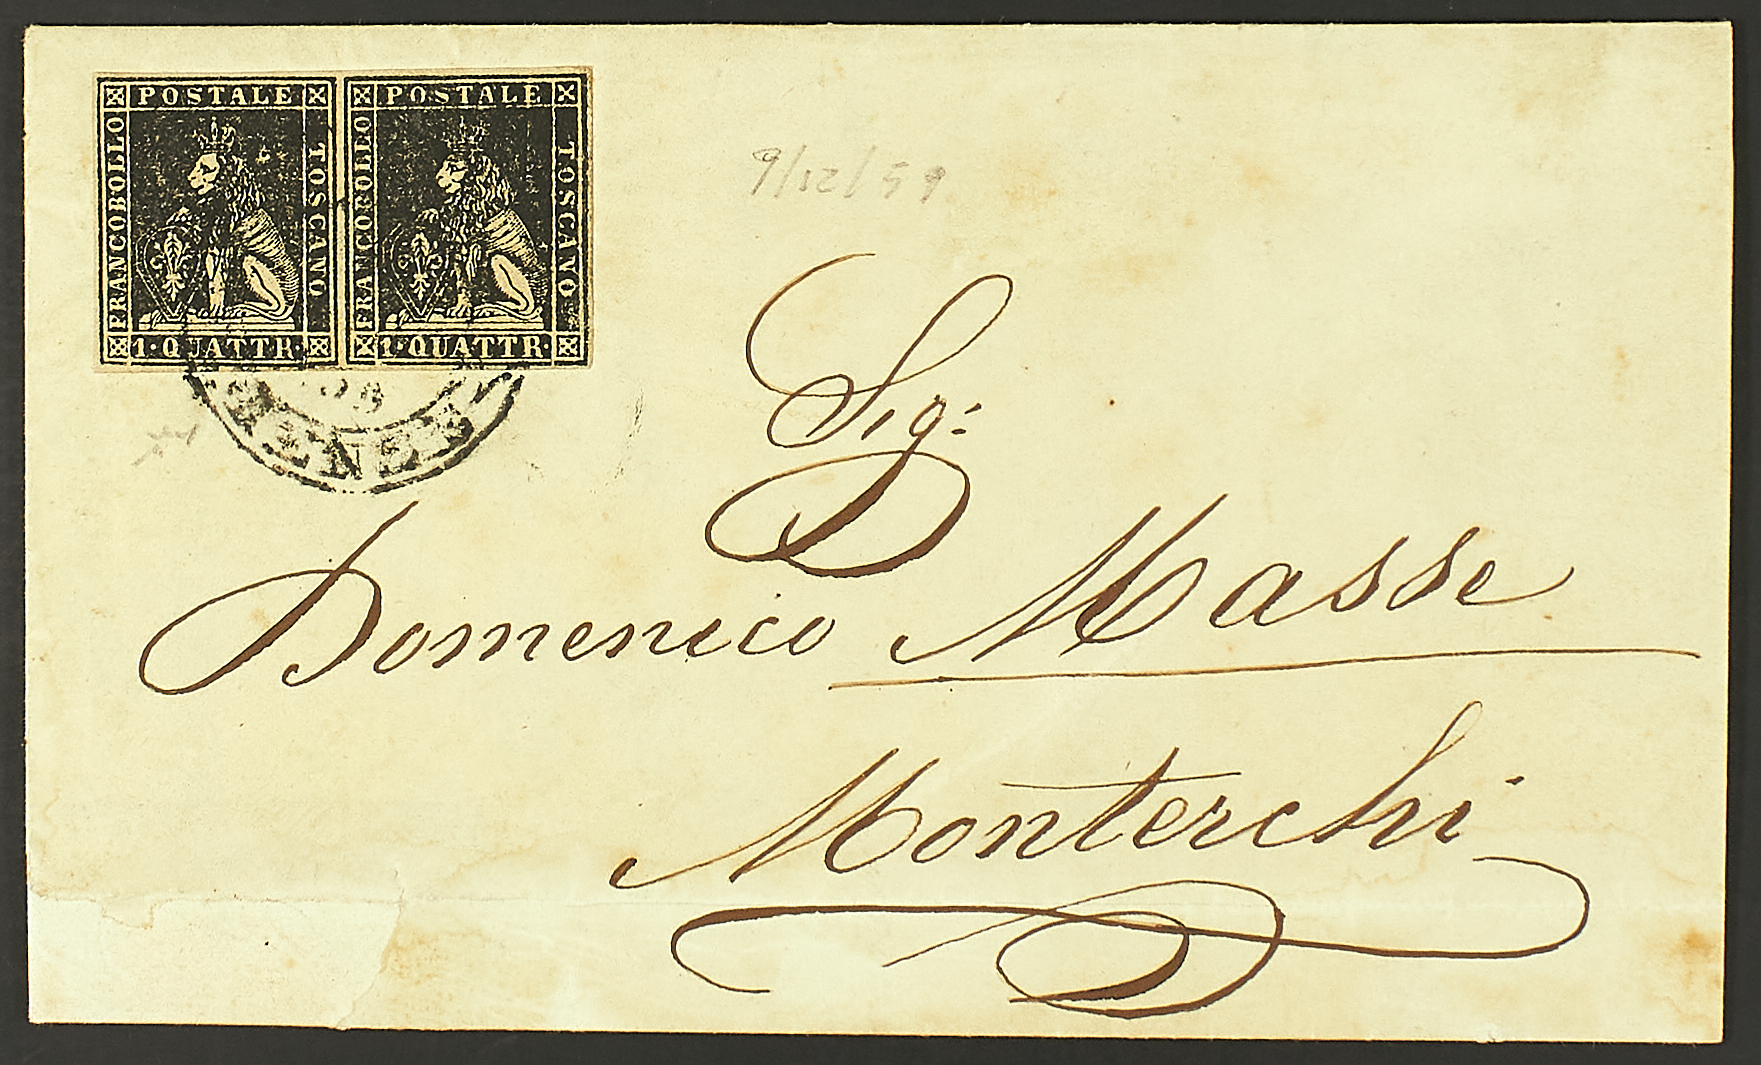 POSTALE POSTALE
FRANCOBOLLO TOSCANO FRANCOBOLLO TOSCANO
1·QUATTR· 1·QUATTR·
9/12/59
Sig:
Domenico Masse
Monterchi